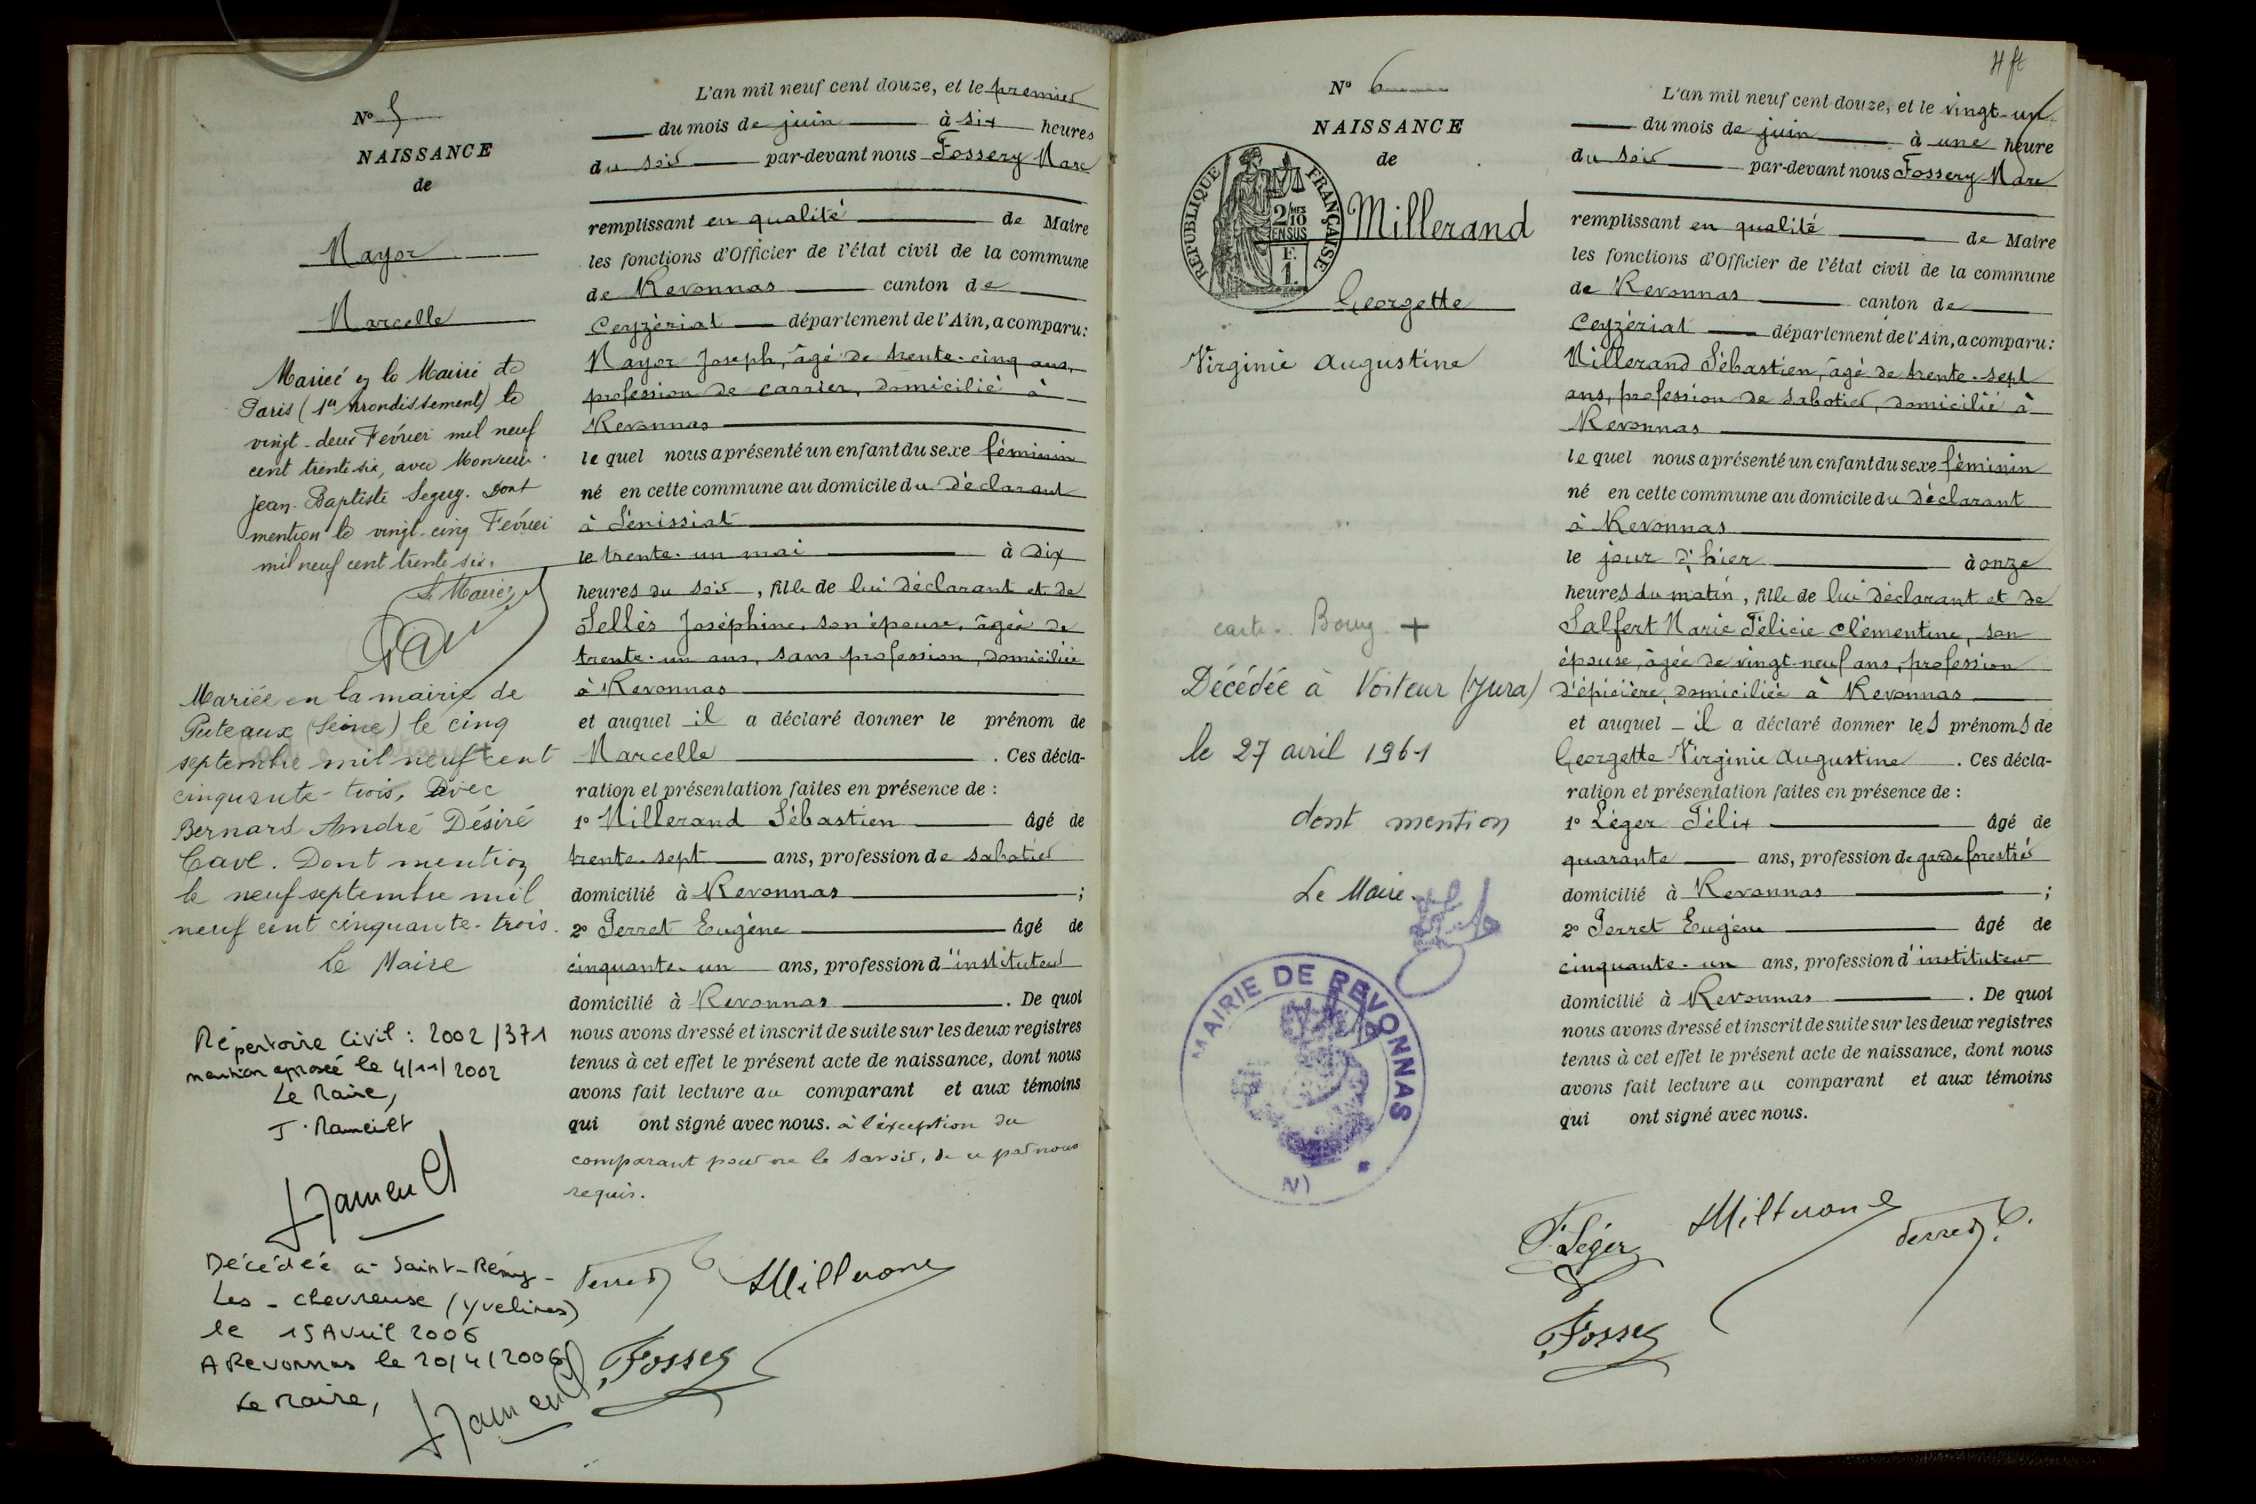 N° 5
NAISSANCE
de
Mayor
Marcelle
Mariée à la Mairie de
Paris (1er Arrondissement) le
vingt-deux Février mil neuf
cent trente six, avec Monsieur
Jean-Baptiste Seguy. Dont
mention le vingt-cinq Février
mil neuf cent trente six.
Le Maire,
Mariée en la mairie de
Puteaux (Seine) le cinq
septembre mil neuf cent
cinquante-trois, avec
Bernard André Désiré
Cavl. Dont mention
le neuf septembre mil
neuf cent cinquante-trois.
Le Maire
Répertoire Civil : 2002/371
mention apposée le 4/11/2002
Le Maire,
Décédée à Saint-Rémy-
Les-Chevreuse (Yvelines)
le 15 Avril 2006
A Revonnas le 20/4/2006
Le Maire,
L'an mil neuf cent douze, et le premier
du mois de juin à six heures
du soir par-devant nous Fossery Marc
remplissant en qualité de Maire
les fonctions d'Officier de l'état civil de la commune
de Revonnas canton de
Ceyzériat département de l'Ain, a comparu :
Mayor Joseph, âgé de trente-cinq ans,
profession de carrier, domicilié à
Revonnas
le quel nous a présenté un enfant du sexe féminin
né en cette commune au domicile du déclarant
à Sénissiat
le trente-un mai à dix
heures du soir, fille de lui déclarant et de
Sellès Joséphine, son épouse, âgée de
trente-un ans, sans profession, domiciliée
à Revonnas
et auquel il a déclaré donner le prénom de
Marcelle. Ces décla-
ration et présentation faites en présence de :
1° Millerand Sébastien âgé de
trente-sept ans, profession de sabotier
domicilié à Revonnas ;
2° Perret Eugène âgé de
cinquante-un ans, profession d'instituteur
domicilié à Revonnas. De quoi
nous avons dressé et inscrit de suite sur les deux registres
tenus à cet effet le présent acte de naissance, dont nous
avons fait lecture au comparant et aux témoins
qui ont signé avec nous. à l'exception du
comparant pour ne le savoir, de ce par nous
requis.
Perret
Millerand
Fossery
4 ft
N° 6
NAISSANCE
de
RÉPUBLIQUE FRANÇAISE
2/10 EN SUS
F. 1.
Millerand
Georgette
Virginie Augustine
carte Bourg +
Décédée à Voiteur (Jura)
le 27 avril 1961
dont mention
Le Maire.
MAIRIE DE REVONNAS
L'an mil neuf cent douze, et le vingt-un
du mois de juin à une heure
du soir par-devant nous Fossery Marc
remplissant en qualité de Maire
les fonctions d'Officier de l'état civil de la commune
de Revonnas canton de
Ceyzériat département de l'Ain, a comparu :
Millerand Sébastien, âgé de trente-sept
ans, profession de sabotier, domicilié à
Revonnas
le quel nous a présenté un enfant du sexe féminin
né en cette commune au domicile du déclarant
à Revonnas
le jour d'hier à onze
heures du matin, fille de lui déclarant et de
Salfert Marie Félicie Clémentine, son
épouse, âgée de vingt-neuf ans, profession
d'épicière, domiciliée à Revonnas
et auquel il a déclaré donner les prénoms de
Georgette Virginie Augustine. Ces décla-
ration et présentation faites en présence de :
1° Léger Félix âgé de
quarante ans, profession de garde forestier
domicilié à Revonnas ;
2° Perret Eugène âgé de
cinquante-un ans, profession d'instituteur
domicilié à Revonnas. De quoi
nous avons dressé et inscrit de suite sur les deux registres
tenus à cet effet le présent acte de naissance, dont nous
avons fait lecture au comparant et aux témoins
qui ont signé avec nous.
F. Léger
Millerand
Perret E.
Fossery